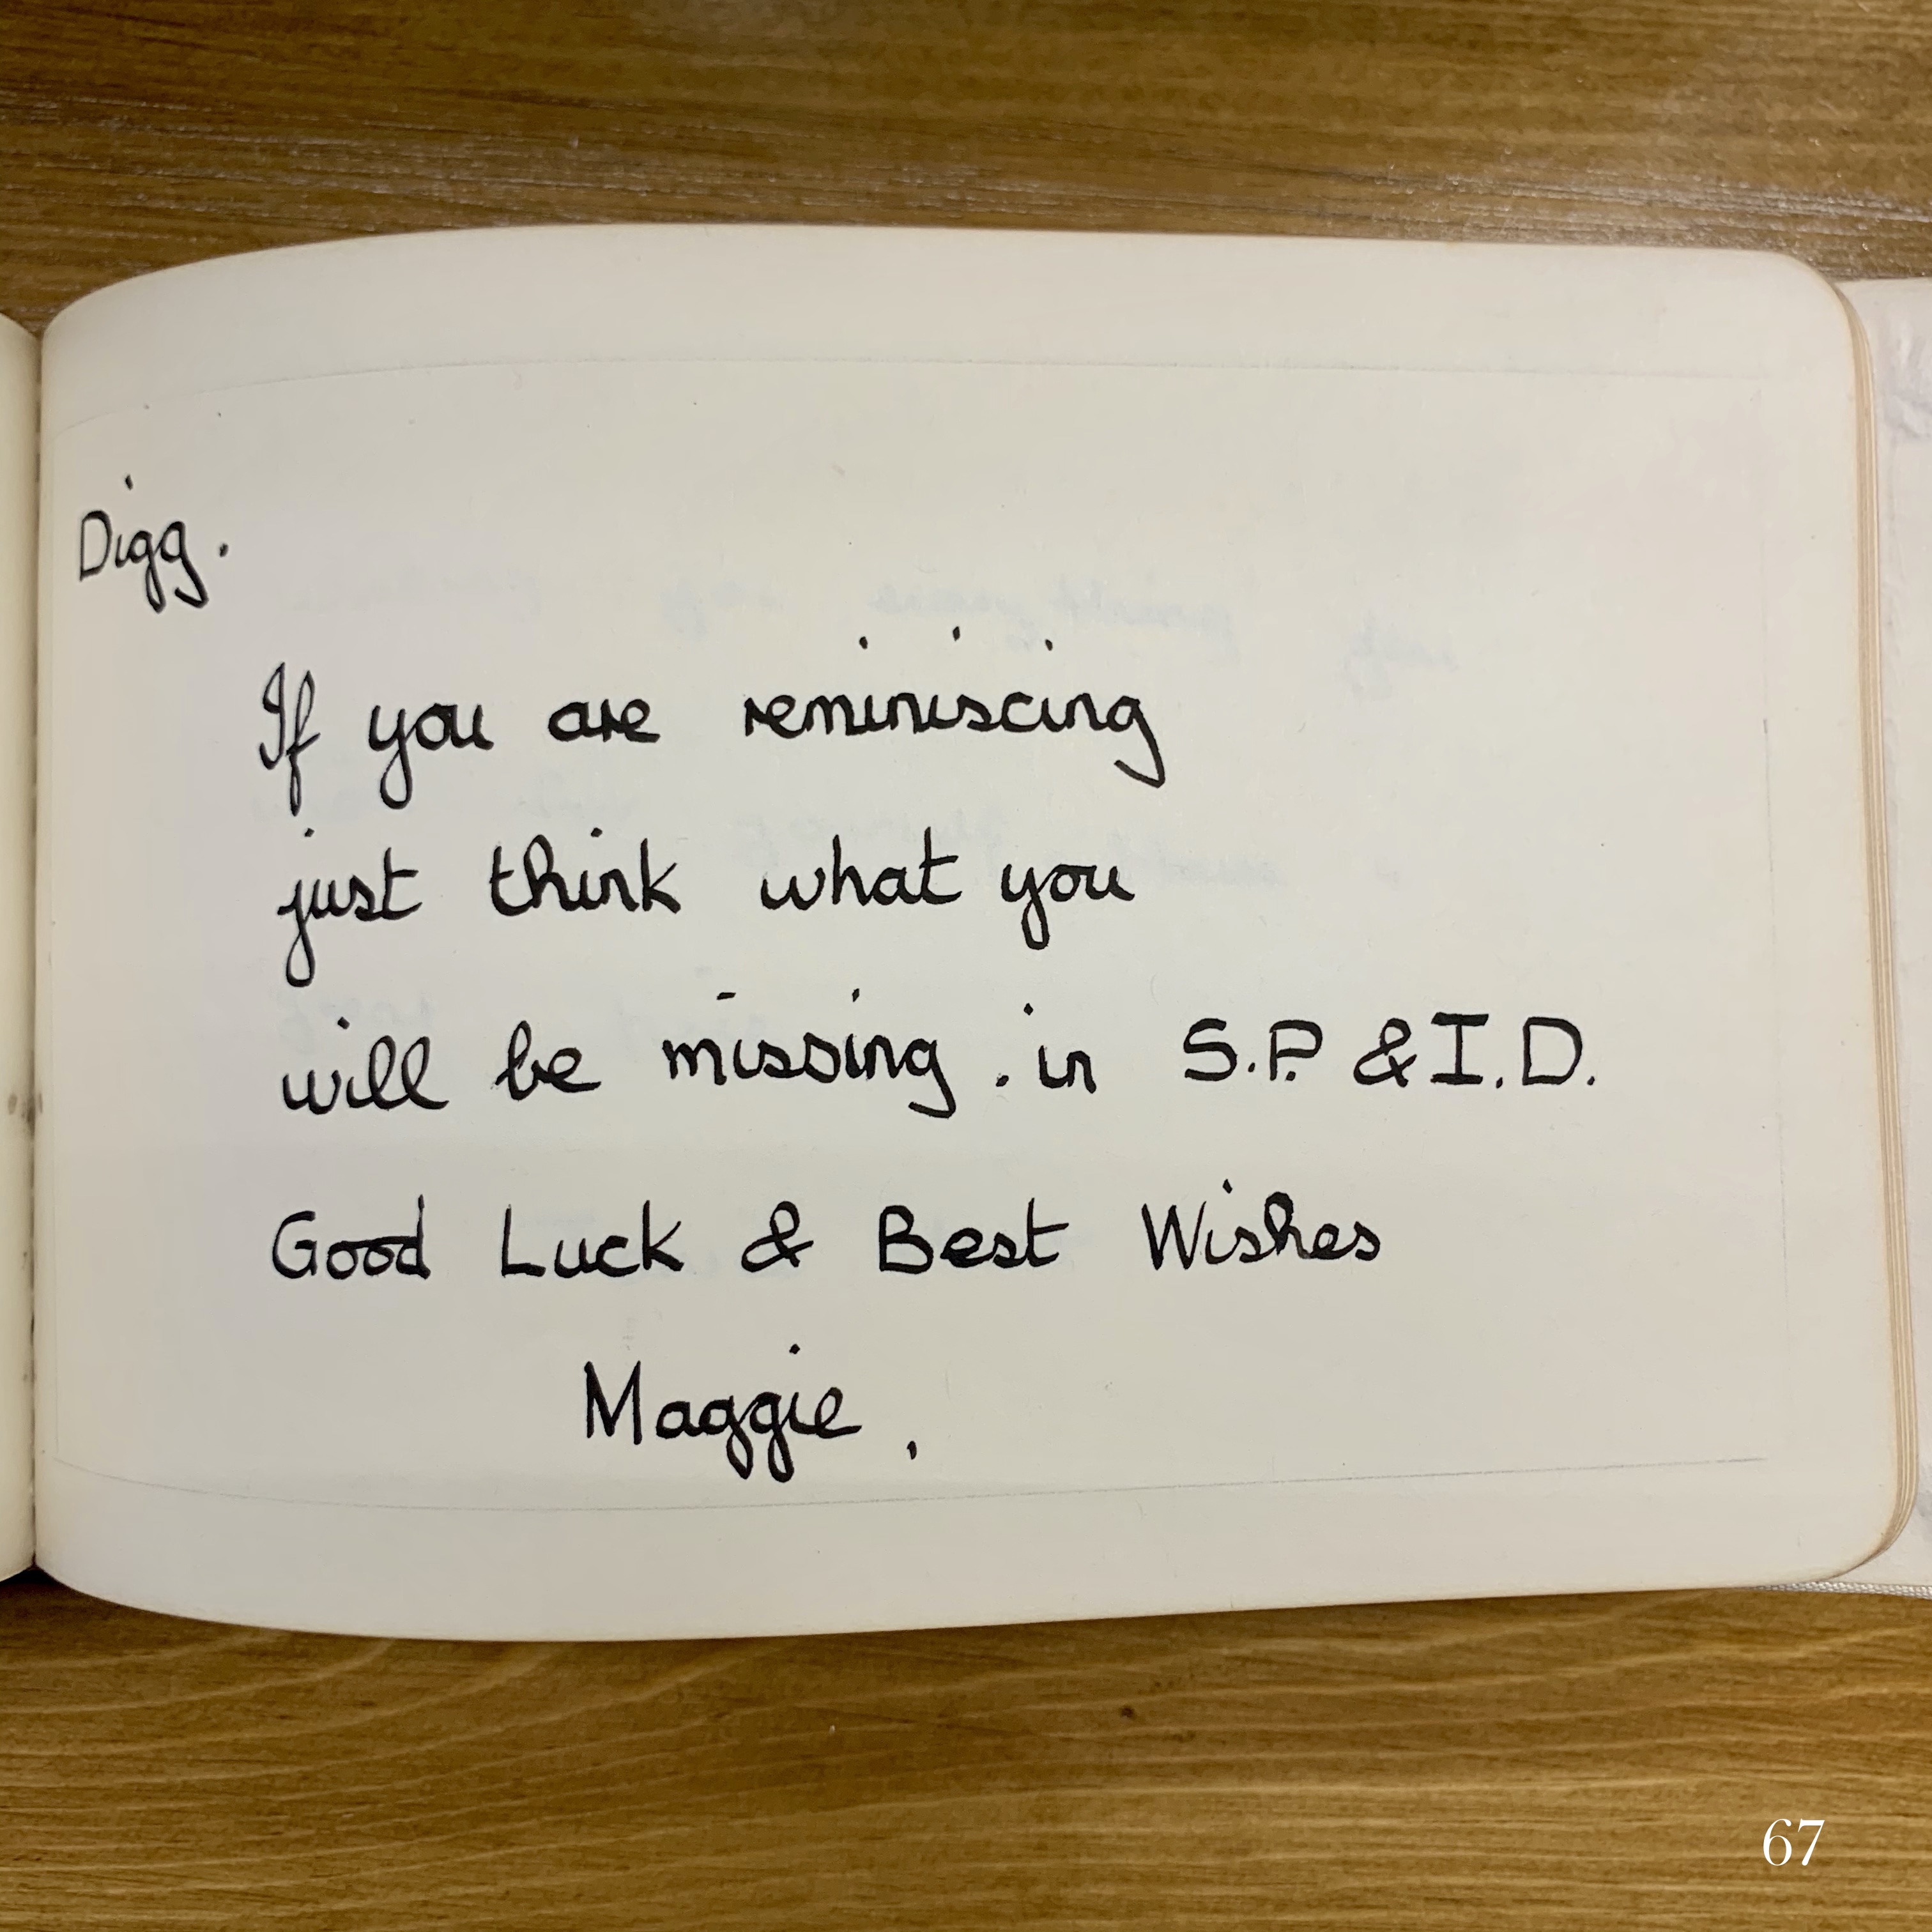 Digg.
If you are reminiscing
just think what you
will be missing . in S.P. & I.D.
Good Luck & Best Wishes
Maggie .
67